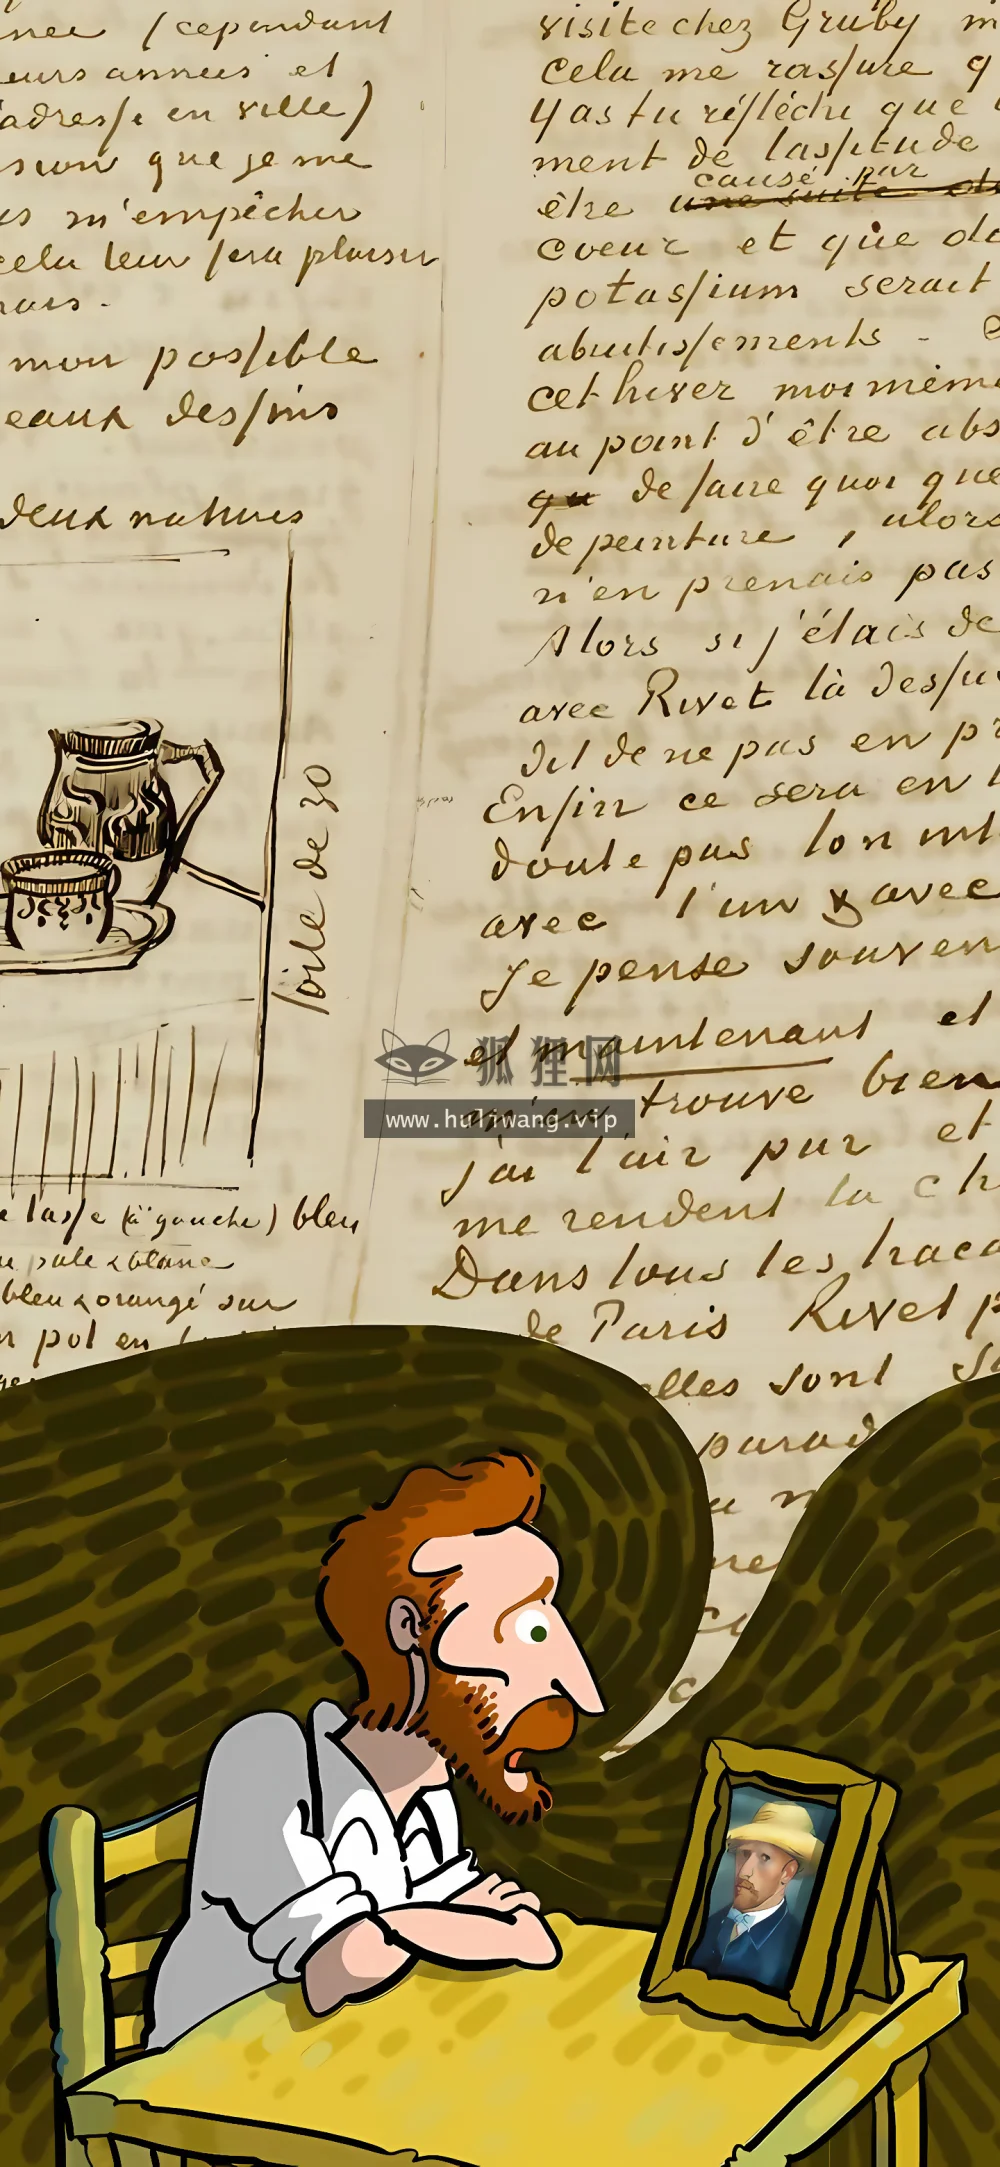 née (cependant
eurs années et
adresse en ville)
sion que je me
m'empêcher
cela leur fera plaisir
mais.
mon possible
eaux dessins
deux natures
toile de 30
tasse (à gauche) bleu
pale & blanc
bleu & orangé sur
pot en
visite chez Gruby m
cela me rassure q
Y as tu réfléchi que
ment de lassitude
causé par
être une suite
coeur et que
potassium serait
abrutissements -
cet hiver moi même
au point d'être abs
qu de faire quoi que
de peinture, alors
n'en prenais pas
Alors si j'étais de
avec Rivet là dessu
dit de ne pas en pr
Enfin ce sera en
doute pas l'on
avec l'un & avec
Je pense souven
et maintenant et
m'en trouve bien
j'ai l'air pur et
me rendent la ch
Dans tous les traca
de Paris Rivet p
elles sont
parad
狐狸网
www.huliwang.vip